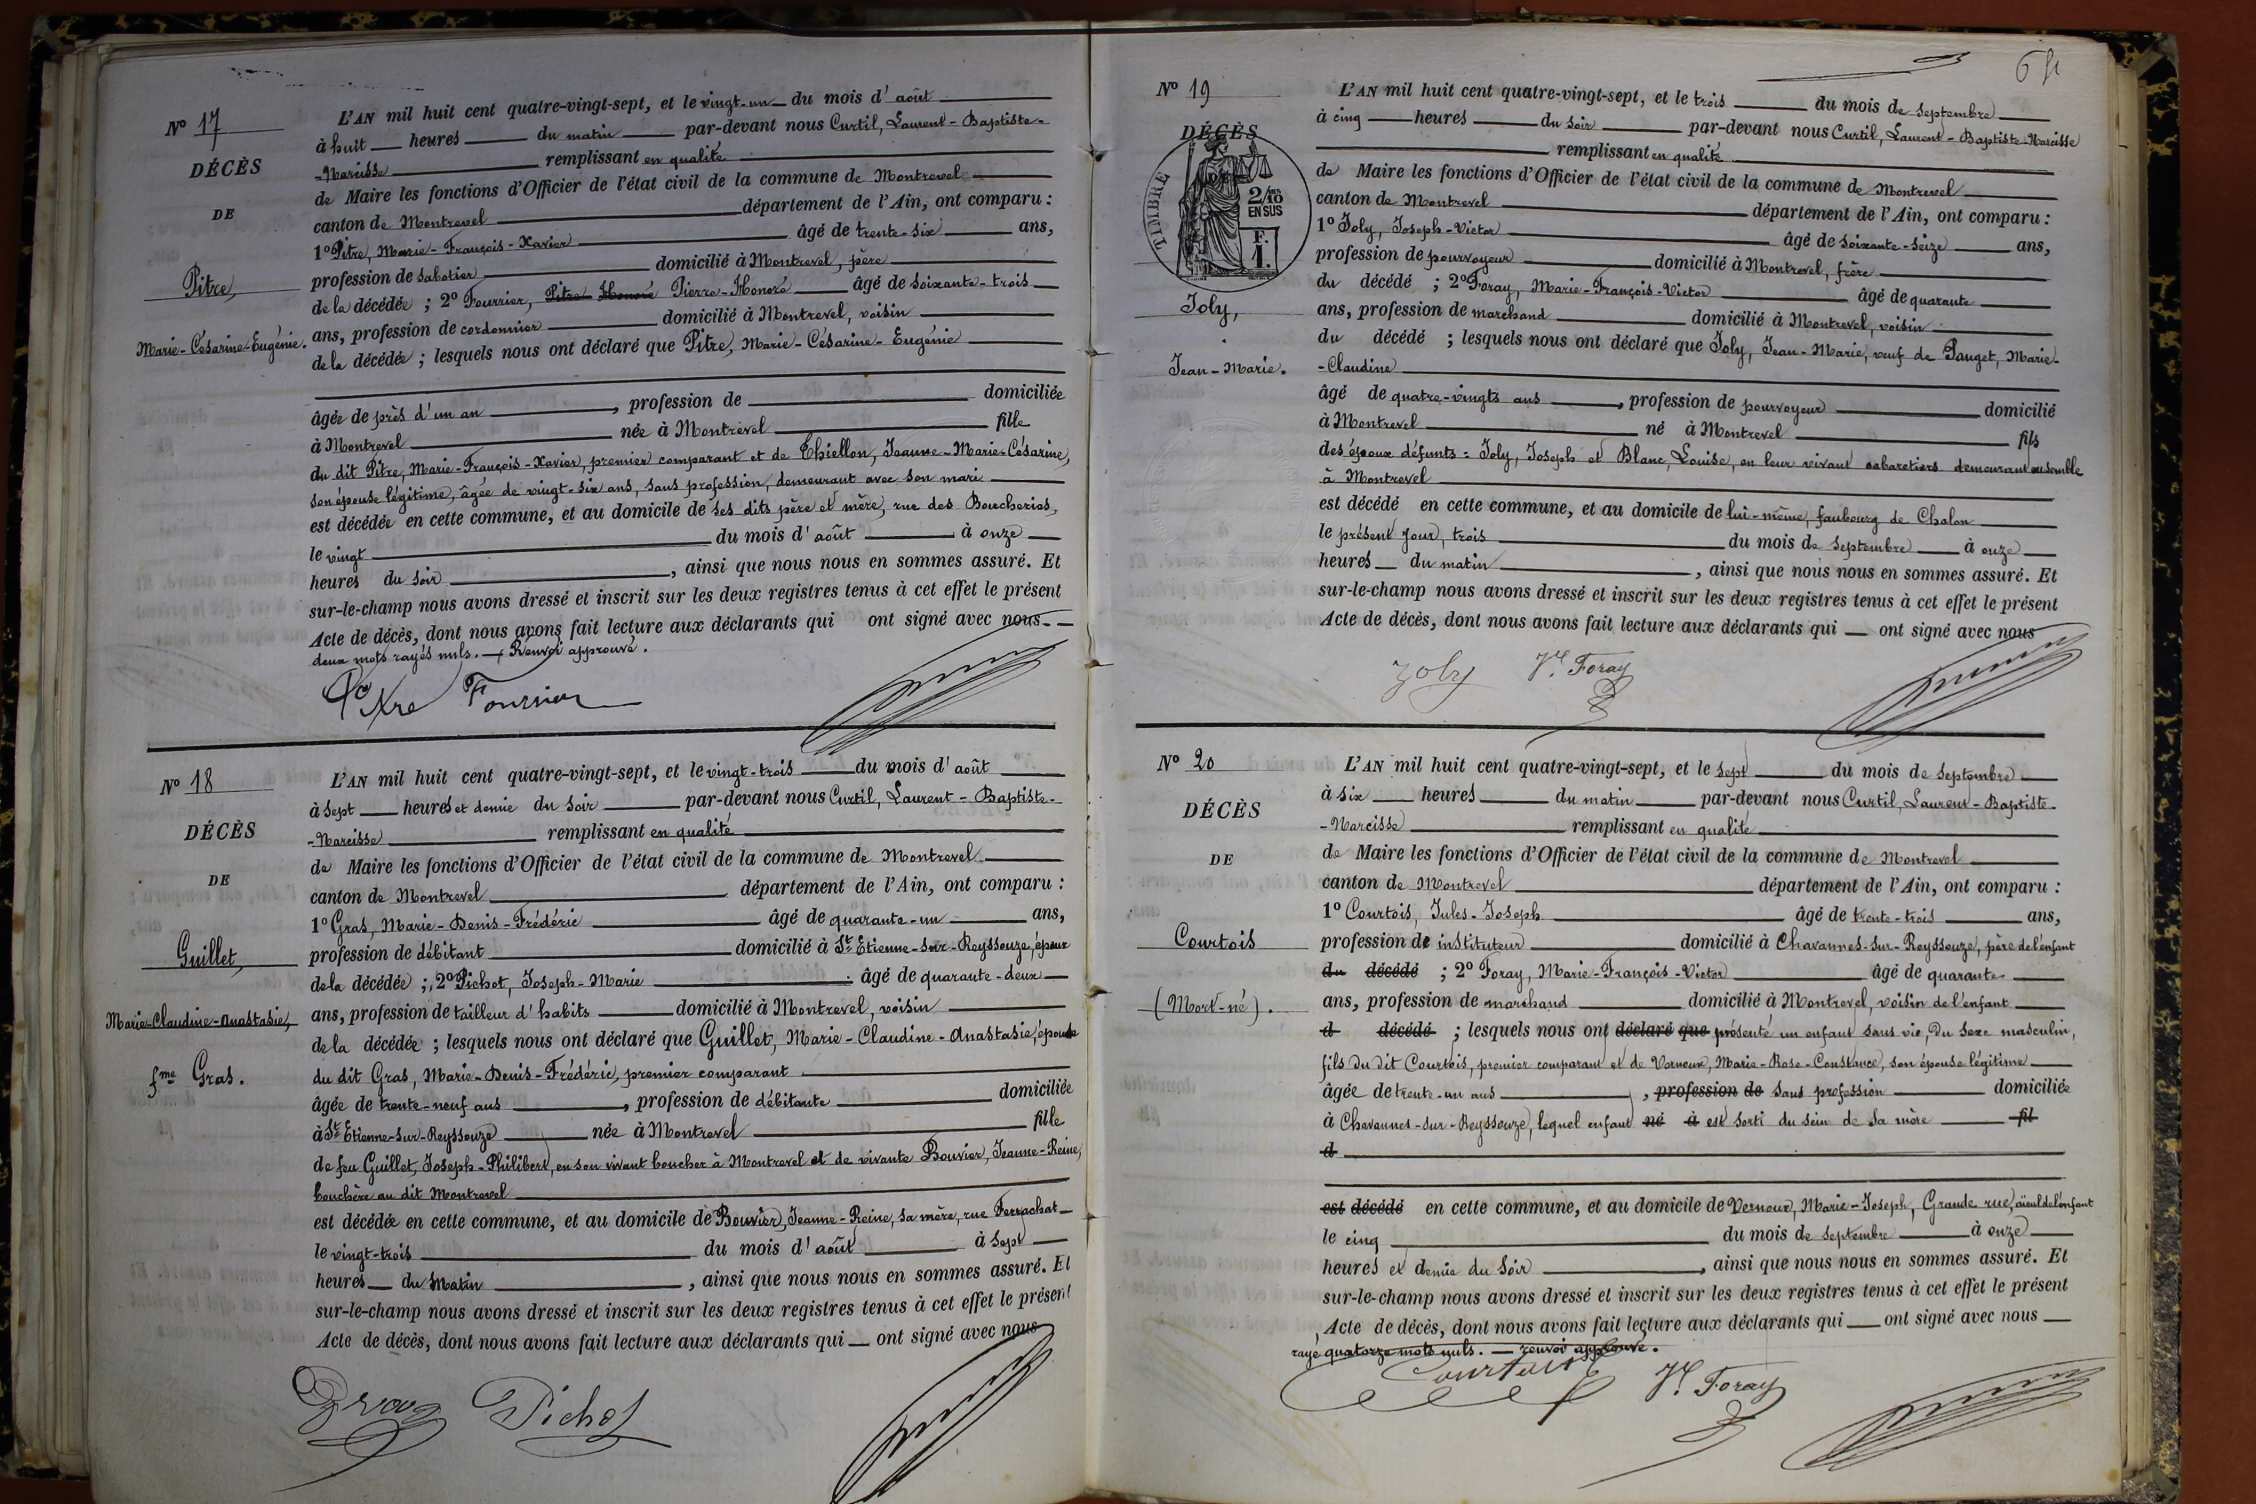 Nº 17
DÉCÈS
DE
Pitre,
Marie-Césarine-Eugénie.
L'AN mil huit cent quatre-vingt-sept, et le vingt-un du mois d'août
à huit heures du matin par-devant nous Curtil, Laurent-Baptiste-
-Narcisse remplissant en qualité
de Maire les fonctions d'Officier de l'état civil de la commune de Montrevel
canton de Montrevel département de l'Ain, ont comparu :
1º Pitre, Marie-François-Xavier âgé de trente-six ans,
profession de sabotier domicilié à Montrevel, père
de la décédée ; 2º Fournier, Pitre Honoré Pierre-Honoré âgé de soixante-trois
ans, profession de cordonnier domicilié à Montrevel, voisin
de la décédée ; lesquels nous ont déclaré que Pitre, Marie-Césarine-Eugénie
âgée de près d'un an, profession de domiciliée
à Montrevel née à Montrevel fille
du dit Pitre, Marie-François-Xavier, premier comparant et de Thiellon, Jeanne-Marie-Césarine,
son épouse légitime, âgée de vingt-six ans, sans profession, demeurant avec son mari
est décédée en cette commune, et au domicile de ses dits père et mère, rue des Boucheries,
le vingt du mois d'août à onze
heures du soir, ainsi que nous nous en sommes assuré. Et
sur-le-champ nous avons dressé et inscrit sur les deux registres tenus à cet effet le présent
Acte de décès, dont nous avons fait lecture aux déclarants qui ont signé avec nous
deux mots rayés nuls. — Renvoi approuvé.
Pitre Fournier
Nº 18
DÉCÈS
DE
Guillet,
Marie-Claudine-Anastasie,
fme Gras.
L'AN mil huit cent quatre-vingt-sept, et le vingt-trois du mois d'août
à sept heures et demie du soir par-devant nous Curtil, Laurent-Baptiste-
-Narcisse remplissant en qualité
de Maire les fonctions d'Officier de l'état civil de la commune de Montrevel
canton de Montrevel département de l'Ain, ont comparu :
1º Gras, Marie-Denis-Frédéric âgé de quarante-un ans,
profession de débitant domicilié à St Etienne-sur-Reyssouze, époux
de la décédée ; 2º Pichot, Joseph-Marie âgé de quarante-deux
ans, profession de tailleur d'habits domicilié à Montrevel, voisin
de la décédée ; lesquels nous ont déclaré que Guillet, Marie-Claudine-Anastasie, épouse
du dit Gras, Marie-Denis-Frédéric, premier comparant
âgée de trente-neuf ans, profession de débitante domiciliée
à St Etienne-sur-Reyssouze née à Montrevel fille
de feu Guillet, Joseph-Philibert, en son vivant boucher à Montrevel et de vivante Bouvier, Jeanne-Reine,
bouchère au dit Montrevel
est décédée en cette commune, et au domicile de Bouvier, Jeanne-Reine, sa mère, rue Ferrachat
le vingt-trois du mois d'août à sept
heures du matin, ainsi que nous nous en sommes assuré. Et
sur-le-champ nous avons dressé et inscrit sur les deux registres tenus à cet effet le présent
Acte de décès, dont nous avons fait lecture aux déclarants qui ont signé avec nous
Gras Pichot
Nº 19
DÉCÈS
TIMBRE
2/10
EN SUS
F.
1.
Joly,
Jean-Marie.
L'AN mil huit cent quatre-vingt-sept, et le trois du mois de septembre
à cinq heures du soir par-devant nous Curtil, Laurent-Baptiste-Narcisse
remplissant en qualité
de Maire les fonctions d'Officier de l'état civil de la commune de Montrevel
canton de Montrevel département de l'Ain, ont comparu :
1º Joly, Joseph-Victor âgé de soixante-seize ans,
profession de pourvoyeur domicilié à Montrevel, frère
du décédé ; 2º Foray, Marie-François-Victor âgé de quarante
ans, profession de marchand domicilié à Montrevel, voisin
du décédé ; lesquels nous ont déclaré que Joly, Jean-Marie, veuf de Pauget, Marie-
-Claudine
âgé de quatre-vingts ans, profession de pourvoyeur domicilié
à Montrevel né à Montrevel fils
des époux défunts : Joly, Joseph et Blanc, Louise, en leur vivant cabaretiers demeurant ensemble
à Montrevel
est décédé en cette commune, et au domicile de lui-même, faubourg de Chalon
le présent jour, trois du mois de septembre à onze
heures du matin, ainsi que nous nous en sommes assuré. Et
sur-le-champ nous avons dressé et inscrit sur les deux registres tenus à cet effet le présent
Acte de décès, dont nous avons fait lecture aux déclarants qui ont signé avec nous
Joly Vr. Foray
Nº 20
DÉCÈS
DE
Courtois
(Mort-né).
L'AN mil huit cent quatre-vingt-sept, et le sept du mois de septembre
à six heures du matin par-devant nous Curtil, Laurent-Baptiste-
-Narcisse remplissant en qualité
de Maire les fonctions d'Officier de l'état civil de la commune de Montrevel
canton de Montrevel département de l'Ain, ont comparu :
1º Courtois, Jules-Joseph âgé de trente-trois ans,
profession de instituteur domicilié à Chavannes-sur-Reyssouze, père de l'enfant
du décédé ; 2º Foray, Marie-François-Victor âgé de quarante
ans, profession de marchand domicilié à Montrevel, voisin de l'enfant
d décédé ; lesquels nous ont déclaré que présenté un enfant sans vie, du sexe masculin,
fils du dit Courtois, premier comparant et de Verneux, Marie-Rose-Constance, son épouse légitime
âgée de trente-un ans, profession de sans profession domiciliée
à Chavannes-sur-Reyssouze, lequel enfant né à est sorti du sein de sa mère fil
d
est décédé en cette commune, et au domicile de Verneux, Marie-Joseph, Grande rue, aïeul de l'enfant
le cinq du mois de septembre à onze
heures et demie du soir, ainsi que nous nous en sommes assuré. Et
sur-le-champ nous avons dressé et inscrit sur les deux registres tenus à cet effet le présent
Acte de décès, dont nous avons fait lecture aux déclarants qui ont signé avec nous
rayé quatorze mots nuls. — renvoi approuvé.
Courtois Vr. Foray